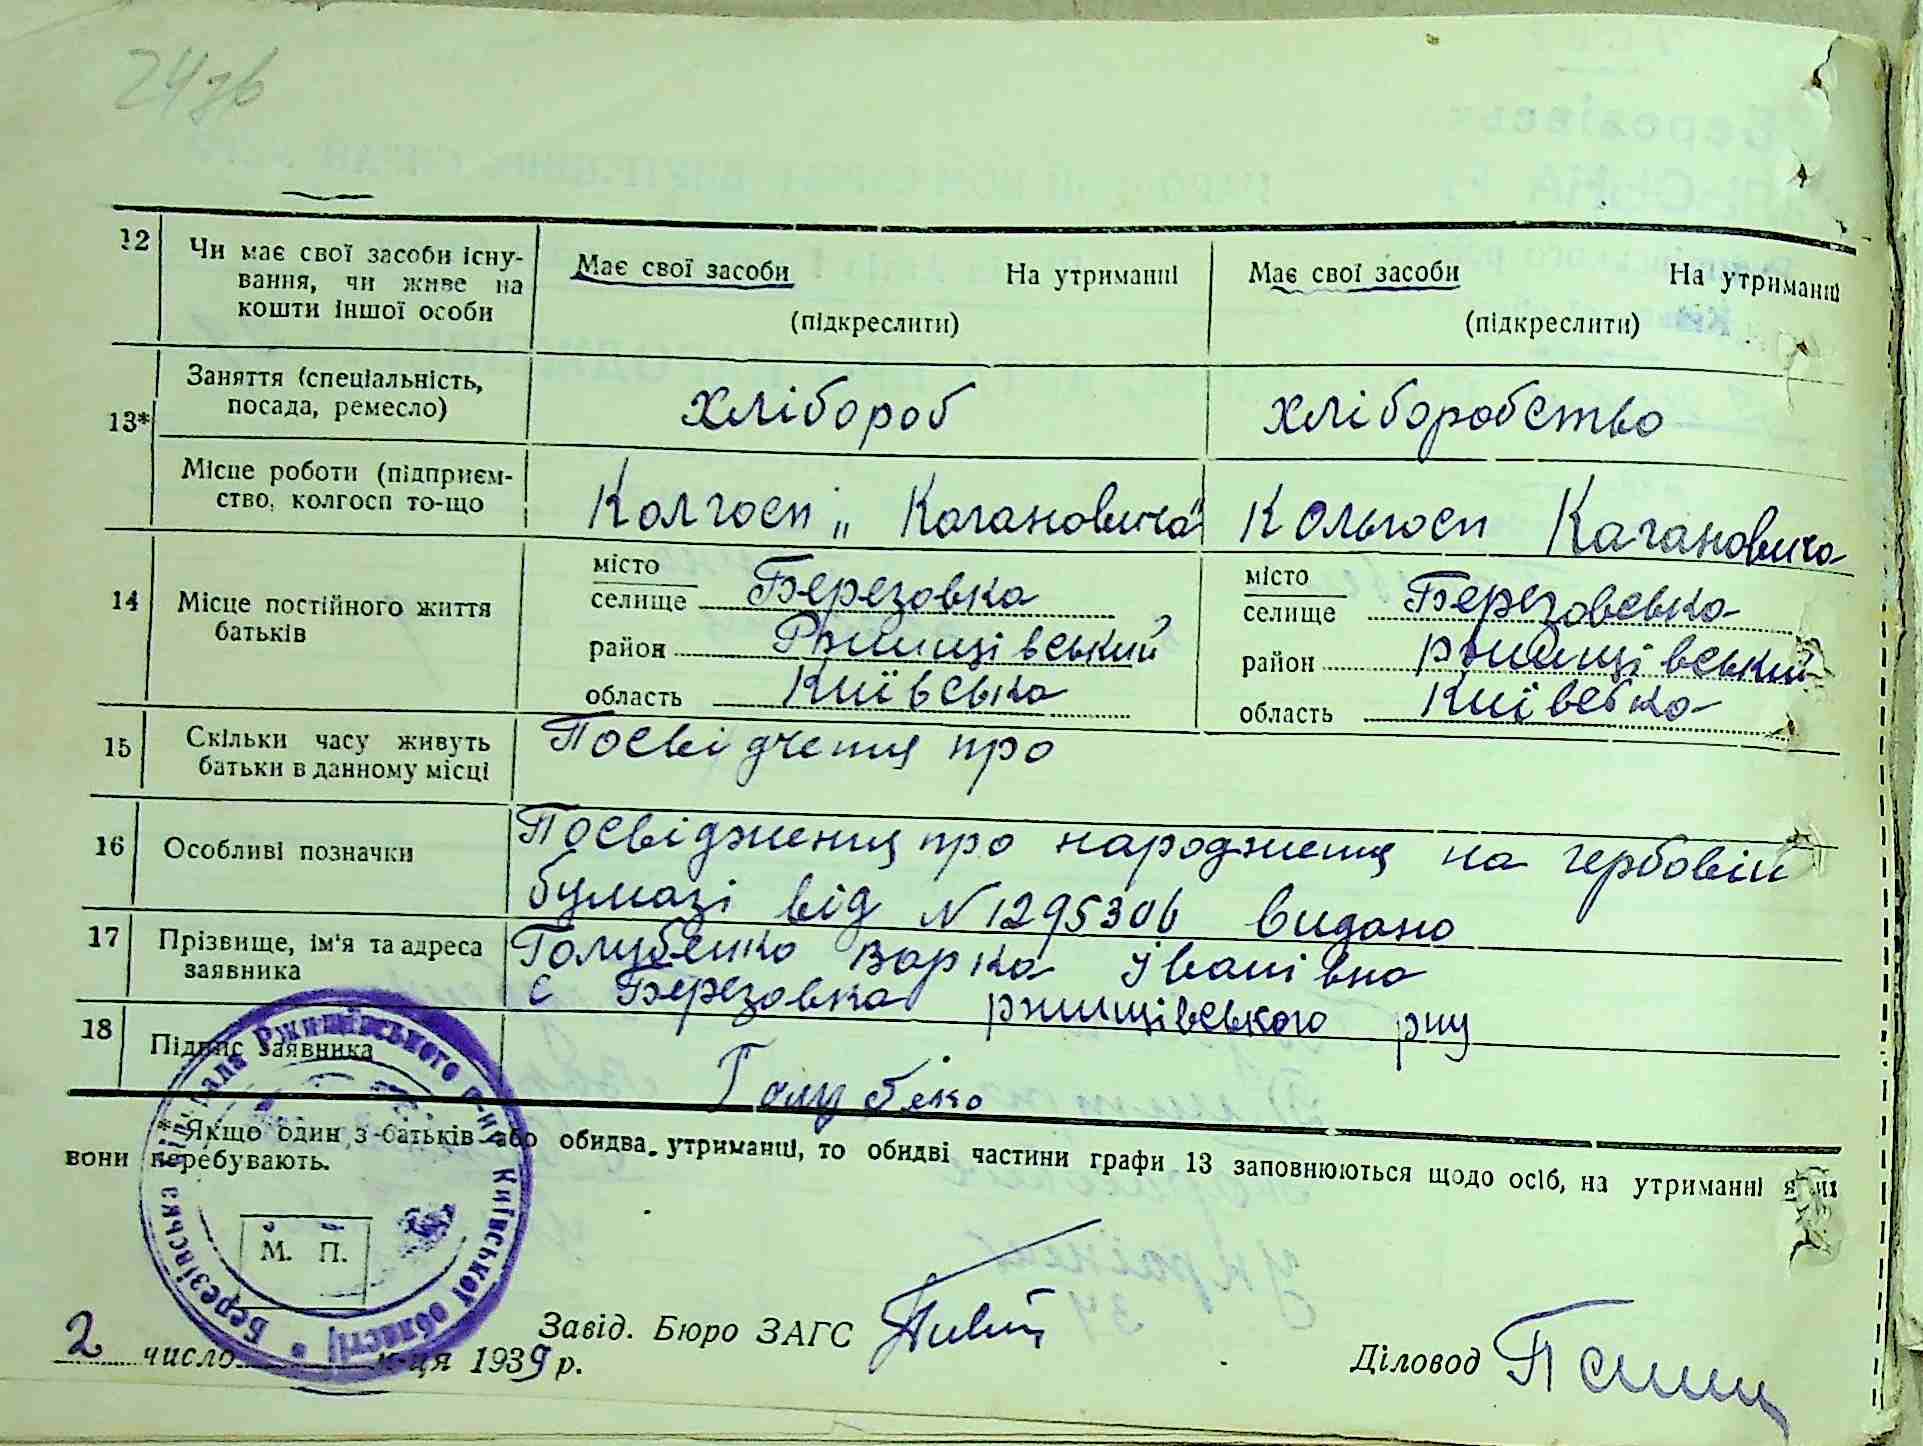 24зв
12 Чи має свої засоби існу-
вання, чи живе на
кошти іншої особи
Має свої засоби На утриманні
(підкреслити)
Має свої засоби На утриманні
(підкреслити)
13* Заняття (спеціальність,
посада, ремесло)
хлібороб
хліборобство
Місце роботи (підприєм-
ство, колгосп то-що
Колгосп „Кагановича"
Кольгосп Кагановича
14 Місце постійного життя
батьків
місто
селище Березовка
район Ржищівський
область Київська
місто
селище Березовська
район ржищівський
область Київська
15 Скільки часу живуть
батьки в данному місці
Посвідчення про
16 Особливі позначки
Посвідження про народження на гербовій
бумазі від N 1295306 видано
17 Прізвище, ім'я та адреса
заявника
Голубенко Варка Іванівна
с Березовка ржищівського рну
18 Підпис заявника
Голубеко
* Якщо один з батьків або обидва утриманні, то обидві частини графи 13 заповнюються щодо осіб, на утриманні яких
вони перебувають.
Березівська сільрада Ржищівського р-ну Київської області
М. П.
Завід. Бюро ЗАГС
2 число м-ця 1939 р.
Діловод